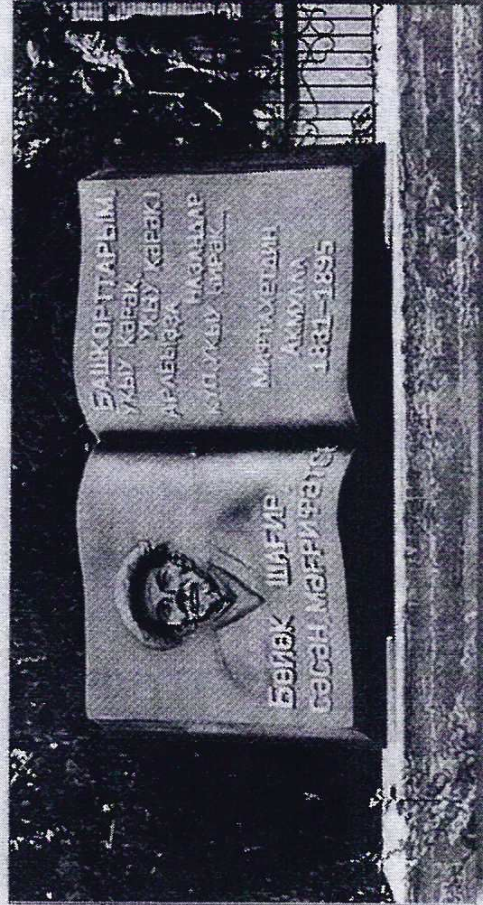 Бөйөк шағир
сәсән мәғрифәтсе
БАШҠОРТТАРЫМ,
УҠЫУ КӘРӘК,
УҠЫУ КӘРӘК!
АРАБЫҘҘА
НАҘАНДАР
КҮП, УҠЫУ ҺИРӘК...
МИФТАХЕТДИН
АҠМУЛЛА
1831–1895